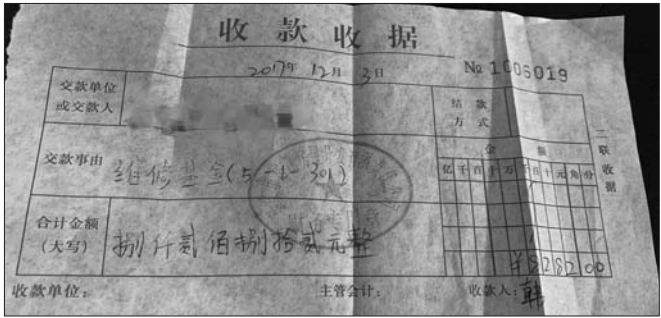 收款收据
2017年12月3日 № 1006019
交款单位
或交款人
结款
方式
二联收据
交款事由 维修基金(5-1-301)
金额
亿千百十万千百十元角分
合计金额
(大写) 捌仟贰佰捌拾贰元整
¥828200
收款单位: 主管会计: 收款人:韩